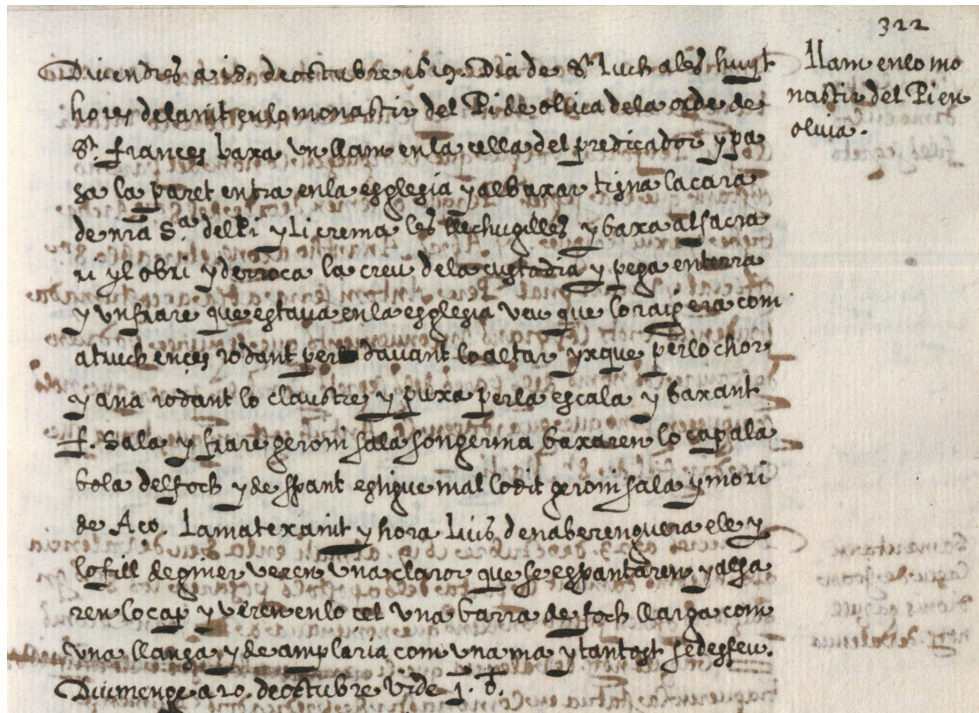 322
Diuendres a 18. de octubre 1619 Dia de St. luch a les huyt
llam en lo mo
hores de la nit en lo monastir del Pi de oliua de la orde de
nastir del Pi en
oliuia.
St. frances baxa un llam en la cella del predicador y pa
sa la paret entra en la esglesia y al baxar tizna la cara
de nra Sa. del Pi y li crema les llechugilles y baxa al sacra
ri y lobri y derroca la creu de la custodia y pega en terra
y un frare que estaua en la esglesia veu que lo raig era com
a tuich ences rodant per dauant lo altar yxque per lo chor
y ana rodant lo claustre y puxa per la escala y baxant
f. Sala y frare geroni sala son germa baxaren lo cap a la
bola del foch y de spant estigue mal lo dit geroni sala y mori
de Aço. La matexa nit y hora Luis dena berenguera ele y
lo fill de giner veren una claror que se espantaren y alsa
ren lo cap y veren en lo cel una barra de foch llarga com
una llança y de amplaria com una ma y tantost se desfeu.
Diumenge a 20. de octubre